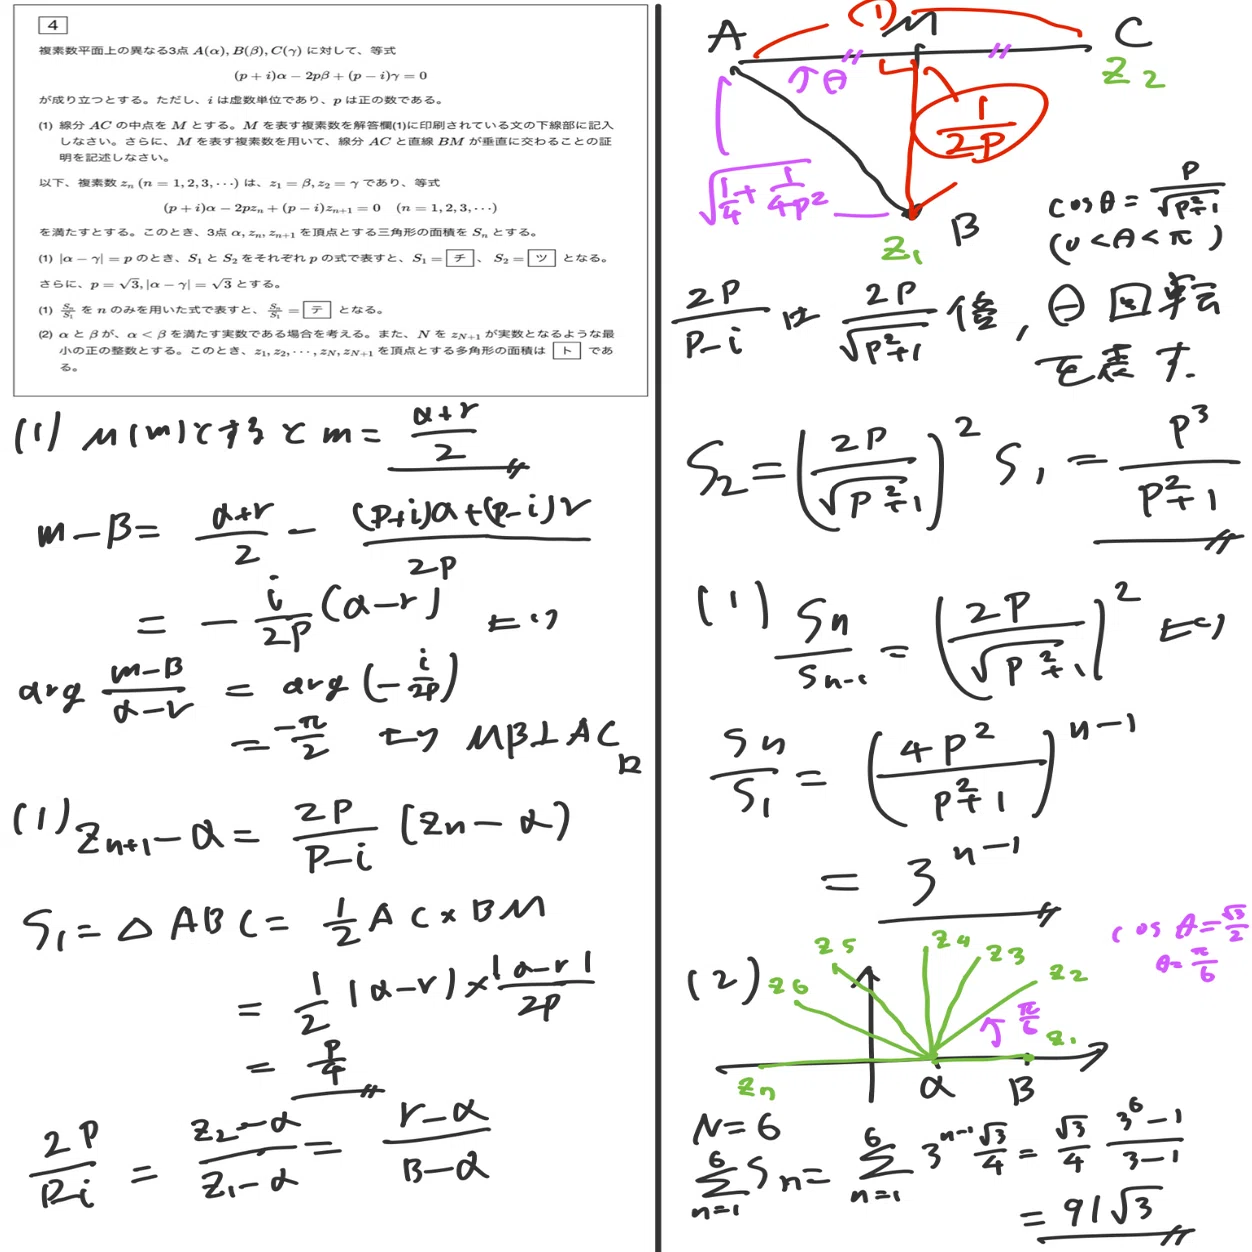 4
複素数平面上の異なる3点 A(α), B(β), C(γ) に対して、等式
(p + i)α − 2pβ + (p − i)γ = 0
が成り立つとする。ただし、i は虚数単位であり、p は正の数である。
(1) 線分 AC の中点を M とする。M を表す複素数を解答欄(1)に印刷されている文の下線部に記入
しなさい。さらに、M を表す複素数を用いて、線分 AC と直線 BM が垂直に交わることの証
明を記述しなさい。
以下、複素数 zn (n = 1, 2, 3, ⋯) は、z1 = β, z2 = γ であり、等式
(p + i)α − 2pzn + (p − i)zn+1 = 0 (n = 1, 2, 3, ⋯)
を満たすとする。このとき、3点 α, zn, zn+1 を頂点とする三角形の面積を Sn とする。
(1) |α − γ| = p のとき、S1 と S2 をそれぞれ p の式で表すと、S1 = チ 、S2 = ツ となる。
さらに、p = √3, |α − γ| = √3 とする。
(1) Sn/S1 を n のみを用いた式で表すと、Sn/S1 = テ となる。
(2) α と β が、α < β を満たす実数である場合を考える。また、N を zN+1 が実数となるような最
小の正の整数とする。このとき、z1, z2, ⋯, zN, zN+1 を頂点とする多角形の面積は ト であ
る。
(1) M(m)とすると m = (α+γ)/2
m−β = (α+γ)/2 − ((p+i)α+(p−i)γ)/2p
= − i/2p (α−γ) より
arg (m−β)/(α−γ) = arg (−i/2p)
= −π/2 より MB⊥AC
(1) Zn+1−α = 2p/(p−i) (Zn−α)
S1 = △ABC = 1/2 AC × BM
= 1/2 |α−γ| × |α−γ|/2p
= p/4
2p/(p−i) = (Z2−α)/(Z1−α) = (γ−α)/(β−α)
A ① M C
Z2
θ
1/2p
√(1/4 + 1/4p²)
Z1 B
cosθ = p/√(p²+1)
(0<θ<π)
2p/(p−i) は 2p/√(p²+1) 倍, θ回転
を表す.
S2 = (2p/√(p²+1))² S1 = p³/(p²+1)
(1) Sn/Sn−1 = (2p/√(p²+1))² より
Sn/S1 = (4p²/(p²+1))^(n−1)
= 3^(n−1)
cosθ = √3/2
θ = π/6
(2) Z6 Z5 Z4 Z3 Z2
π/6
Z1
Z7 α β
N = 6
Σ[n=1→6] Sn = Σ[n=1→6] 3^(n−1) √3/4 = √3/4 (3⁶−1)/(3−1)
= 91√3